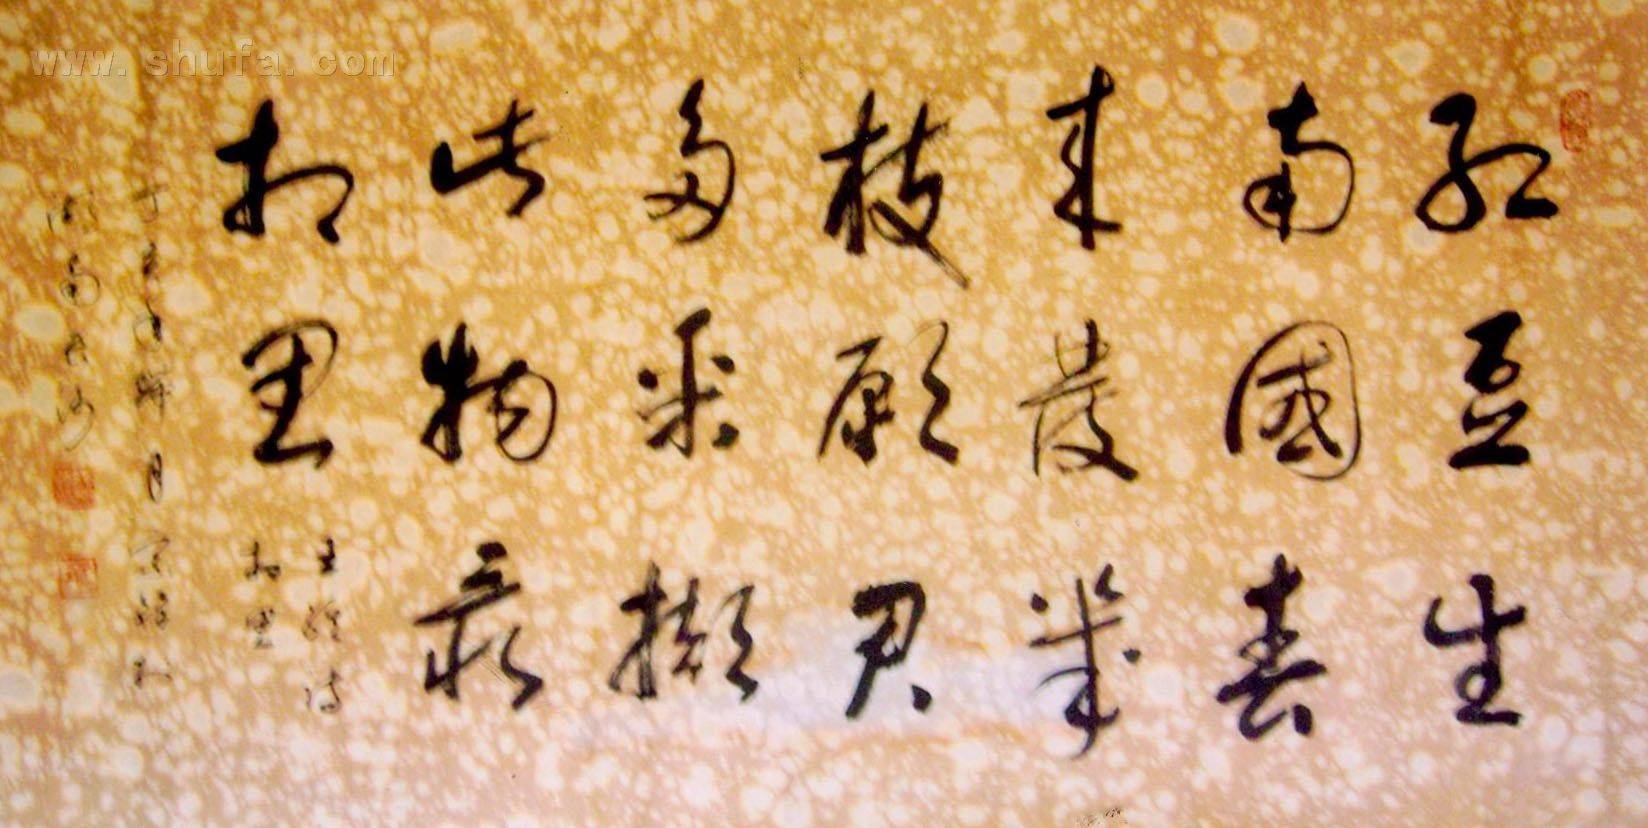 红豆生
南國春
来發幾
枝願君
多采擷
此物最
相思
王維詩
相思
www.shufa.com